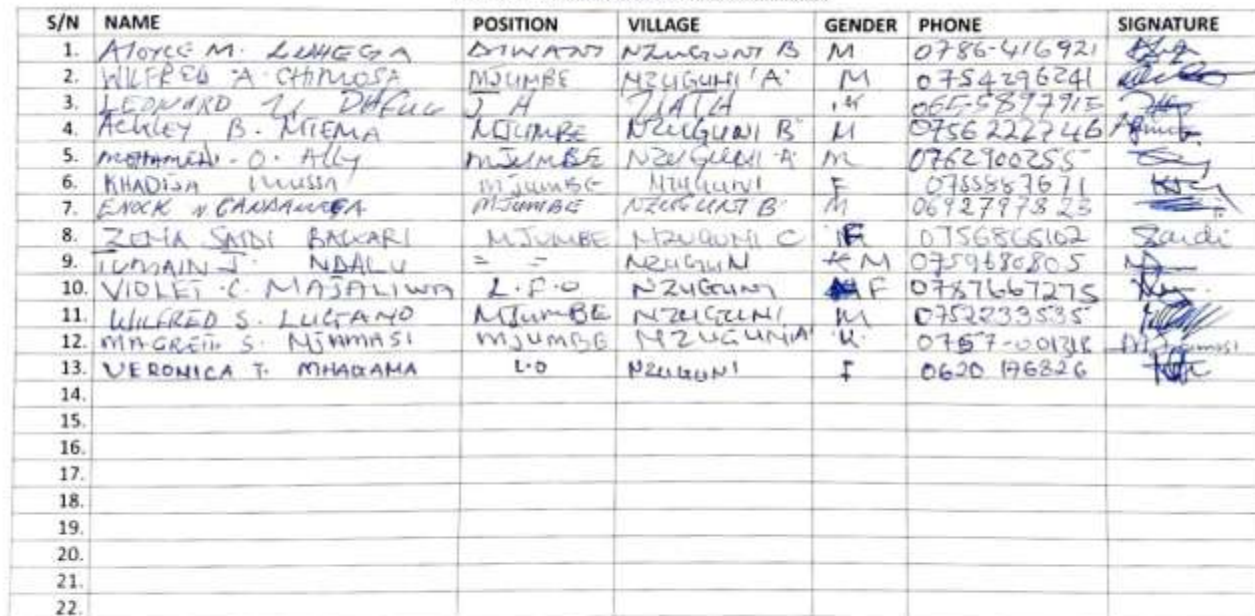 S/N NAME POSITION VILLAGE GENDER PHONE SIGNATURE
1. Aloyce M. LUHEGA DIWANI NZUGUNI B M 0786-416921
2. WILFRED A. CHIMOSA MJUMBE NZUGUNI 'A' M 0754296241
3. LEONARD J
4. ACKLEY B. MJUMBE NZUGUNI B' M 0756222746
5. MOHAMEDI. O. Ally MJUMBE NZUGUNI A M 0762900255
6. KHADIJA MJUMBE NZUGUNI F 0755887671
7. ENOCK MJUMBE NZUGUNI B' M 0692797823
8. SAIDI BAKARI MJUMBE NZUGUNI C F 0756865102 Saidi
9. TUMAIN J. NDALU = = NZUGUNI M 0759680805
10. VIOLET. C. MAJALIWA L.F.O NZUGUNI F 0787667275
11. WILFRED S. LUGANO MJUMBE NZUGUNI M 0752233535
12. MAGRETH S. MJUMBE NZUGUNI A K
13. VERONICA T. MHAGAMA L.O NZUGUNI F 0620 196826
14.
15.
16.
17.
18.
19.
20.
21.
22.